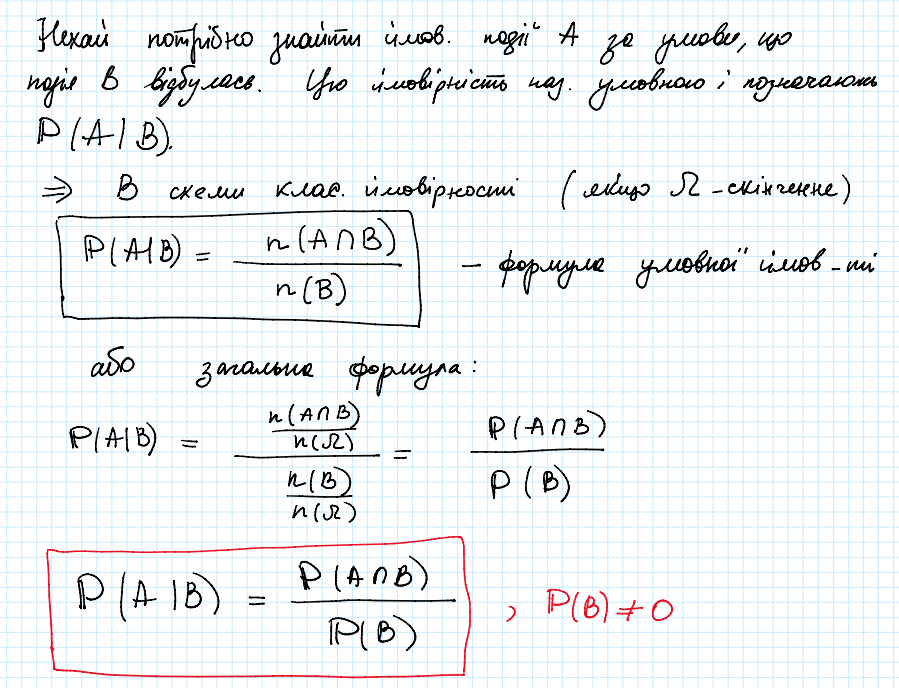 Нехай потрібно знайти ймов. події A за умови, що
подія B відбулась. Цю ймовірність наз. умовною і позначають
P(A|B).
⇒ В схеми клас. ймовірності (якщо Ω - скінченне)
P(A|B) = n(A∩B) / n(B) – формула умовної ймов-ті
або загальна формула:
P(A|B) = (n(A∩B)/n(Ω)) / (n(B)/n(Ω)) = P(A∩B) / P(B)
P(A|B) = P(A∩B) / P(B) , P(B) ≠ 0